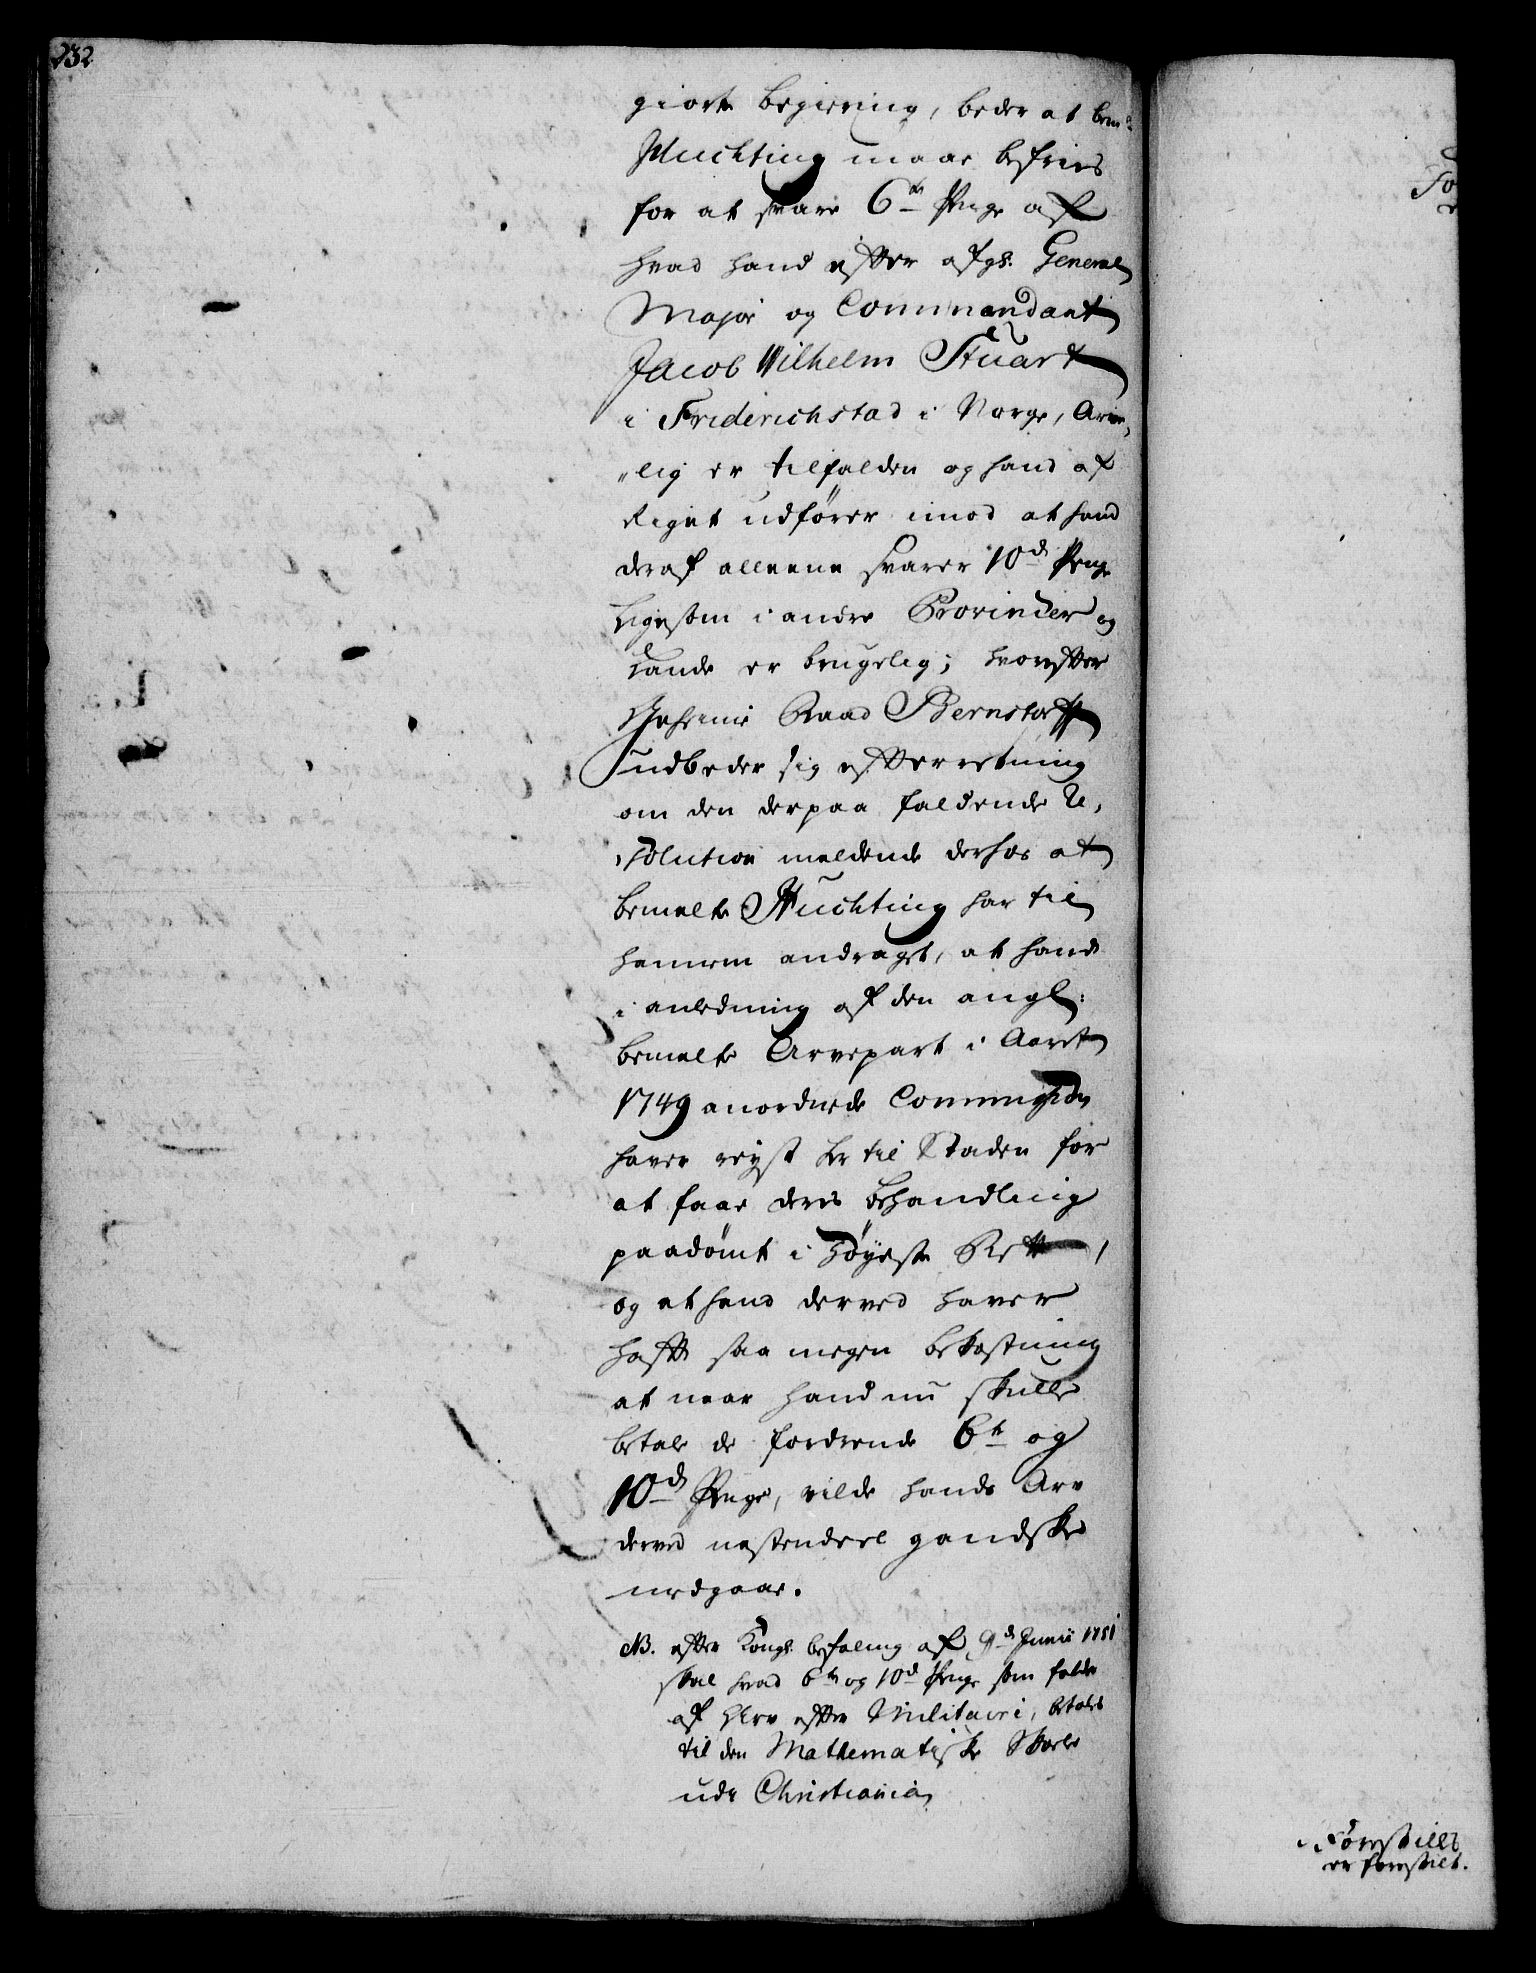 232
giorte begiering, beder at bem.te
Huchting maae befries
for at svare 6te Penge af
hvad hand efter afgl. General
Major og Commandant
Jacob Wilhelm Stuart
i Friderichstad i Norge, Arve-
"lig er tilfalden og hand af
Riget udfører imod at hand
deraf alleene svarer 10de Penge
ligesom i andre Provincier og
Lande er brugelig; hvorefter
Geheime Raad Bernstorff
udbeder sig efterretning
om den derpaa faldende Re-
solution meldende derhos at
bemelte Huchting har til
hannem andraget, at hand
i anledning af den angl:
bemelte Arvepart i Aaret
1749 anordnede Commission
haver reyst her til Staden for
at faae deres behandling
paadømt i Høyeste Rett,
og at hand derved haver
hafft saa megen bekostning
at naar hand nu skulle
betale de fordrende 6te og
10de Penge, vilde hands Arv
derved nestendeel gandske
medgaae.
NB. efter Kongl. befaling af 9de Junii 1751
skal hvad 6te og 10de Penge som falde
af Arv efter Militaire, betales
til den Mathematiske Skole
udi Christiania
Fo
Forestilles
er forestilt.